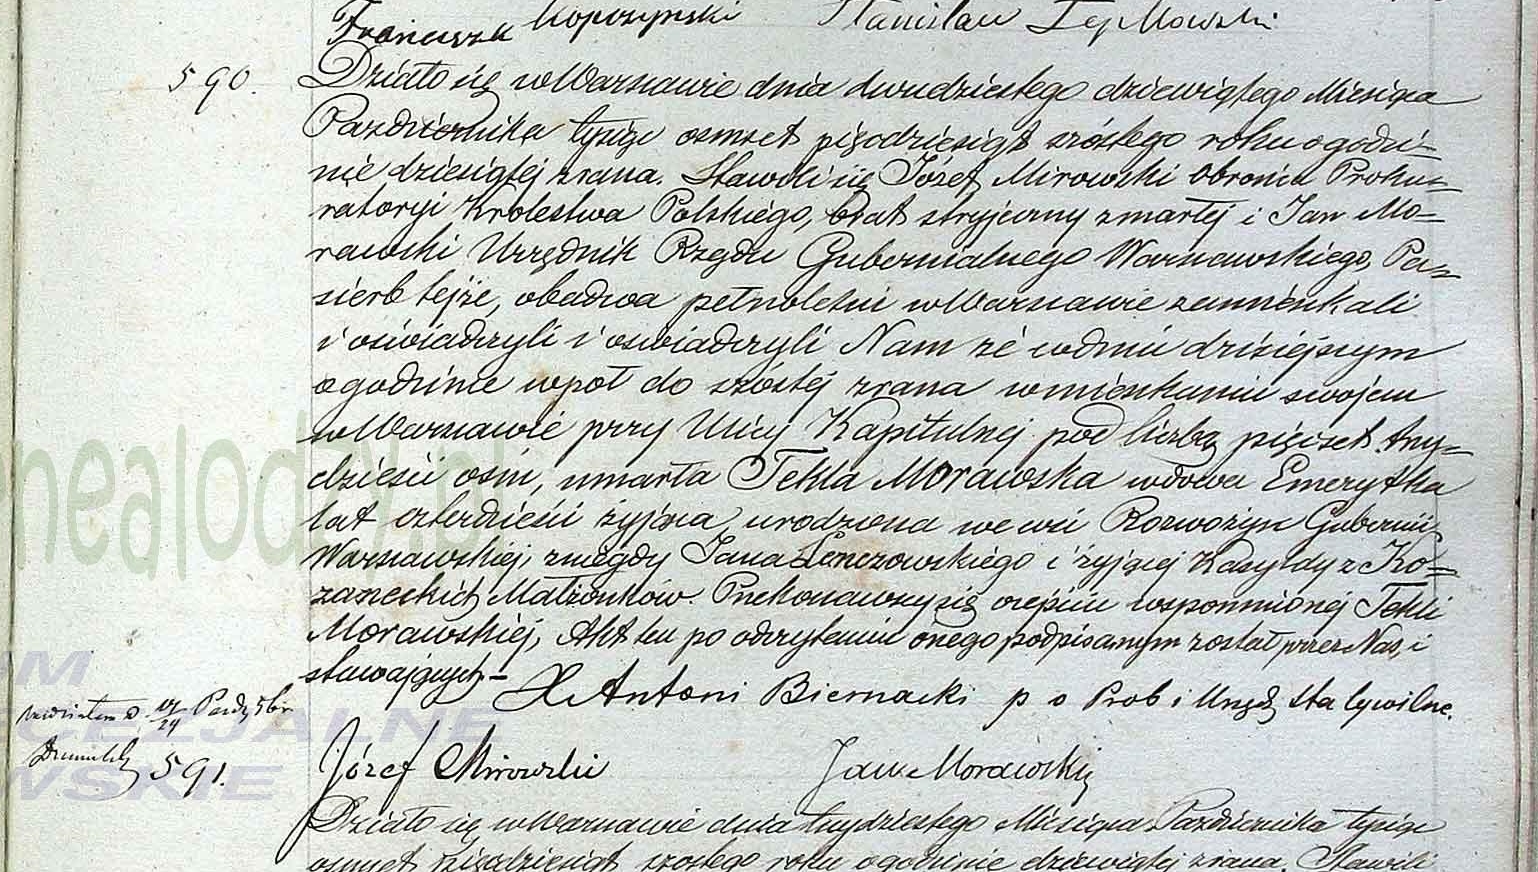 Franciszek Kopczyński Stanisław
590.
Działo się w Warszawie dnia dwudziestego dziewiątego Miesiąca
Października tysiąc osmset pięćdziesiąt szóstego roku o godzi-
nie dziesiątej zrana. Stawili się Józef Mirowski Obrońca Proku-
ratoryi Królestwa Polskiego, brat stryjeczny zmarłej i Jan Mo-
rawski Urzędnik Rządu Gubernialnego Warszawskiego, Pa-
sierb tejże, obadwa pełnoletni w Warszawie zamieszkali
i oświadczyli i oświadczyli Nam że w dniu dzisiejszym
o godzinie wpół do szóstej zrana w mieszkaniu swojem
w Warszawie przy Ulicy Kapitulnej pod liczbą pięćset trzy-
dzieści ośm, umarła Tekla Morawska wdowa Emerytka
lat czterdzieści żyjąca, urodzona we wsi Guberni
Warszawskiej, z niegdy Jana Lenczowskiego i żyjącej Kasyldy z Ko-
zaneckich Małżonków. Przekonawszy się o zejściu wspomnionej Tekli
Morawskiej, Akt ten po odczytaniu onego podpisanym został przez Nas i
stawających -
X Antoni Biernacki p o Prob i Urzęd Sta Cywilne.
17/24 Paźdź
591.
Józef Mirowski Jan Morawski
Działo się w Warszawie dnia trzydziestego Miesiąca Października tysiąc
osmset pięćdziesiąt szóstego roku o godzinie dziewiątej zrana. Stawili
nealodzy.pl